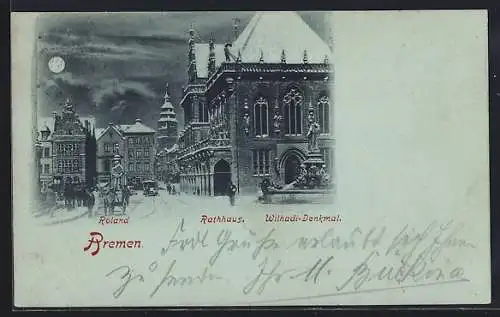 Roland
Rathhaus.
Wilhadi-Denkmal.
Bremen.
Frdl Grüße erlaubt sich Ihnen
zu senden Ihr M.